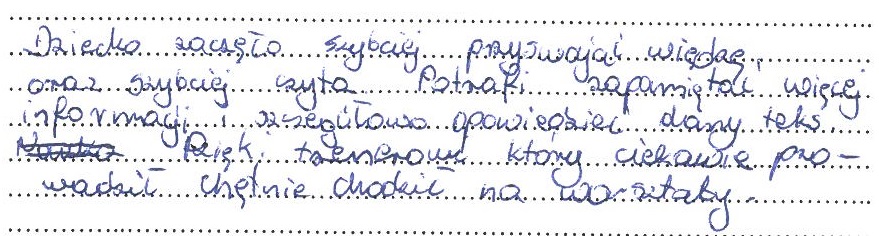 Dziecko zaczęło szybciej przyswajać wiedzę,
oraz szybciej czyta. Potrafi zapamiętać więcej
informacji i szczegółowo opowiedzieć dany teks
Dzięki trenerowi który ciekawie pro-
wadził chętnie chodził na warsztaty.